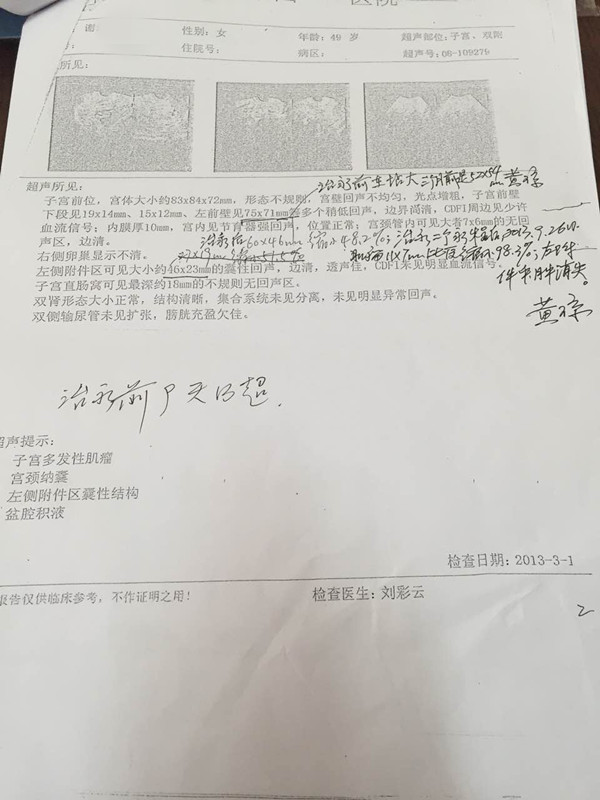 医院
性别：女 年龄：49 岁 超声部位：子宫、双附
住院号： 病区： 超声号：06-109279
所见：
超声所见：
治疗前生培大 二个月前是52x54
黄
子宫前位，宫体大小约83x84x72mm，形态不规则，宫壁回声不均匀，光点增粗，子宫前壁
下段见19x14mm、15x12mm、左前壁见75x71mm等多个稍低回声，边界高清，CDFI周边见少许
血流信号；内膜厚10mm，宫内见节育器强回声，位置正常；宫颈管内可见大者7x6mm的无回
声区，边清。
治疗后60x46mm 缩小48.2%；治疗二个 2013.9.26
右侧卵巢显示不清。
11x7mm 98.3%；
消失。
左侧附件区可见大小约46x23mm的囊性回声，边清，透声佳，CDFI未见明显血流信号。
子宫直肠窝可见最深约18mm的不规则无回声区。
黄
双肾形态大小正常，结构清晰，集合系统未见分离，未见明显异常回声。
双侧输尿管未见扩张，膀胱充盈欠佳。
治疗前 天 超.
超声提示：
子宫多发性肌瘤
宫颈纳囊
左侧附件区囊性结构
盆腔积液
检查日期：2013-3-1
报告仅供临床参考，不作证明之用！ 检查医生：刘彩云
2